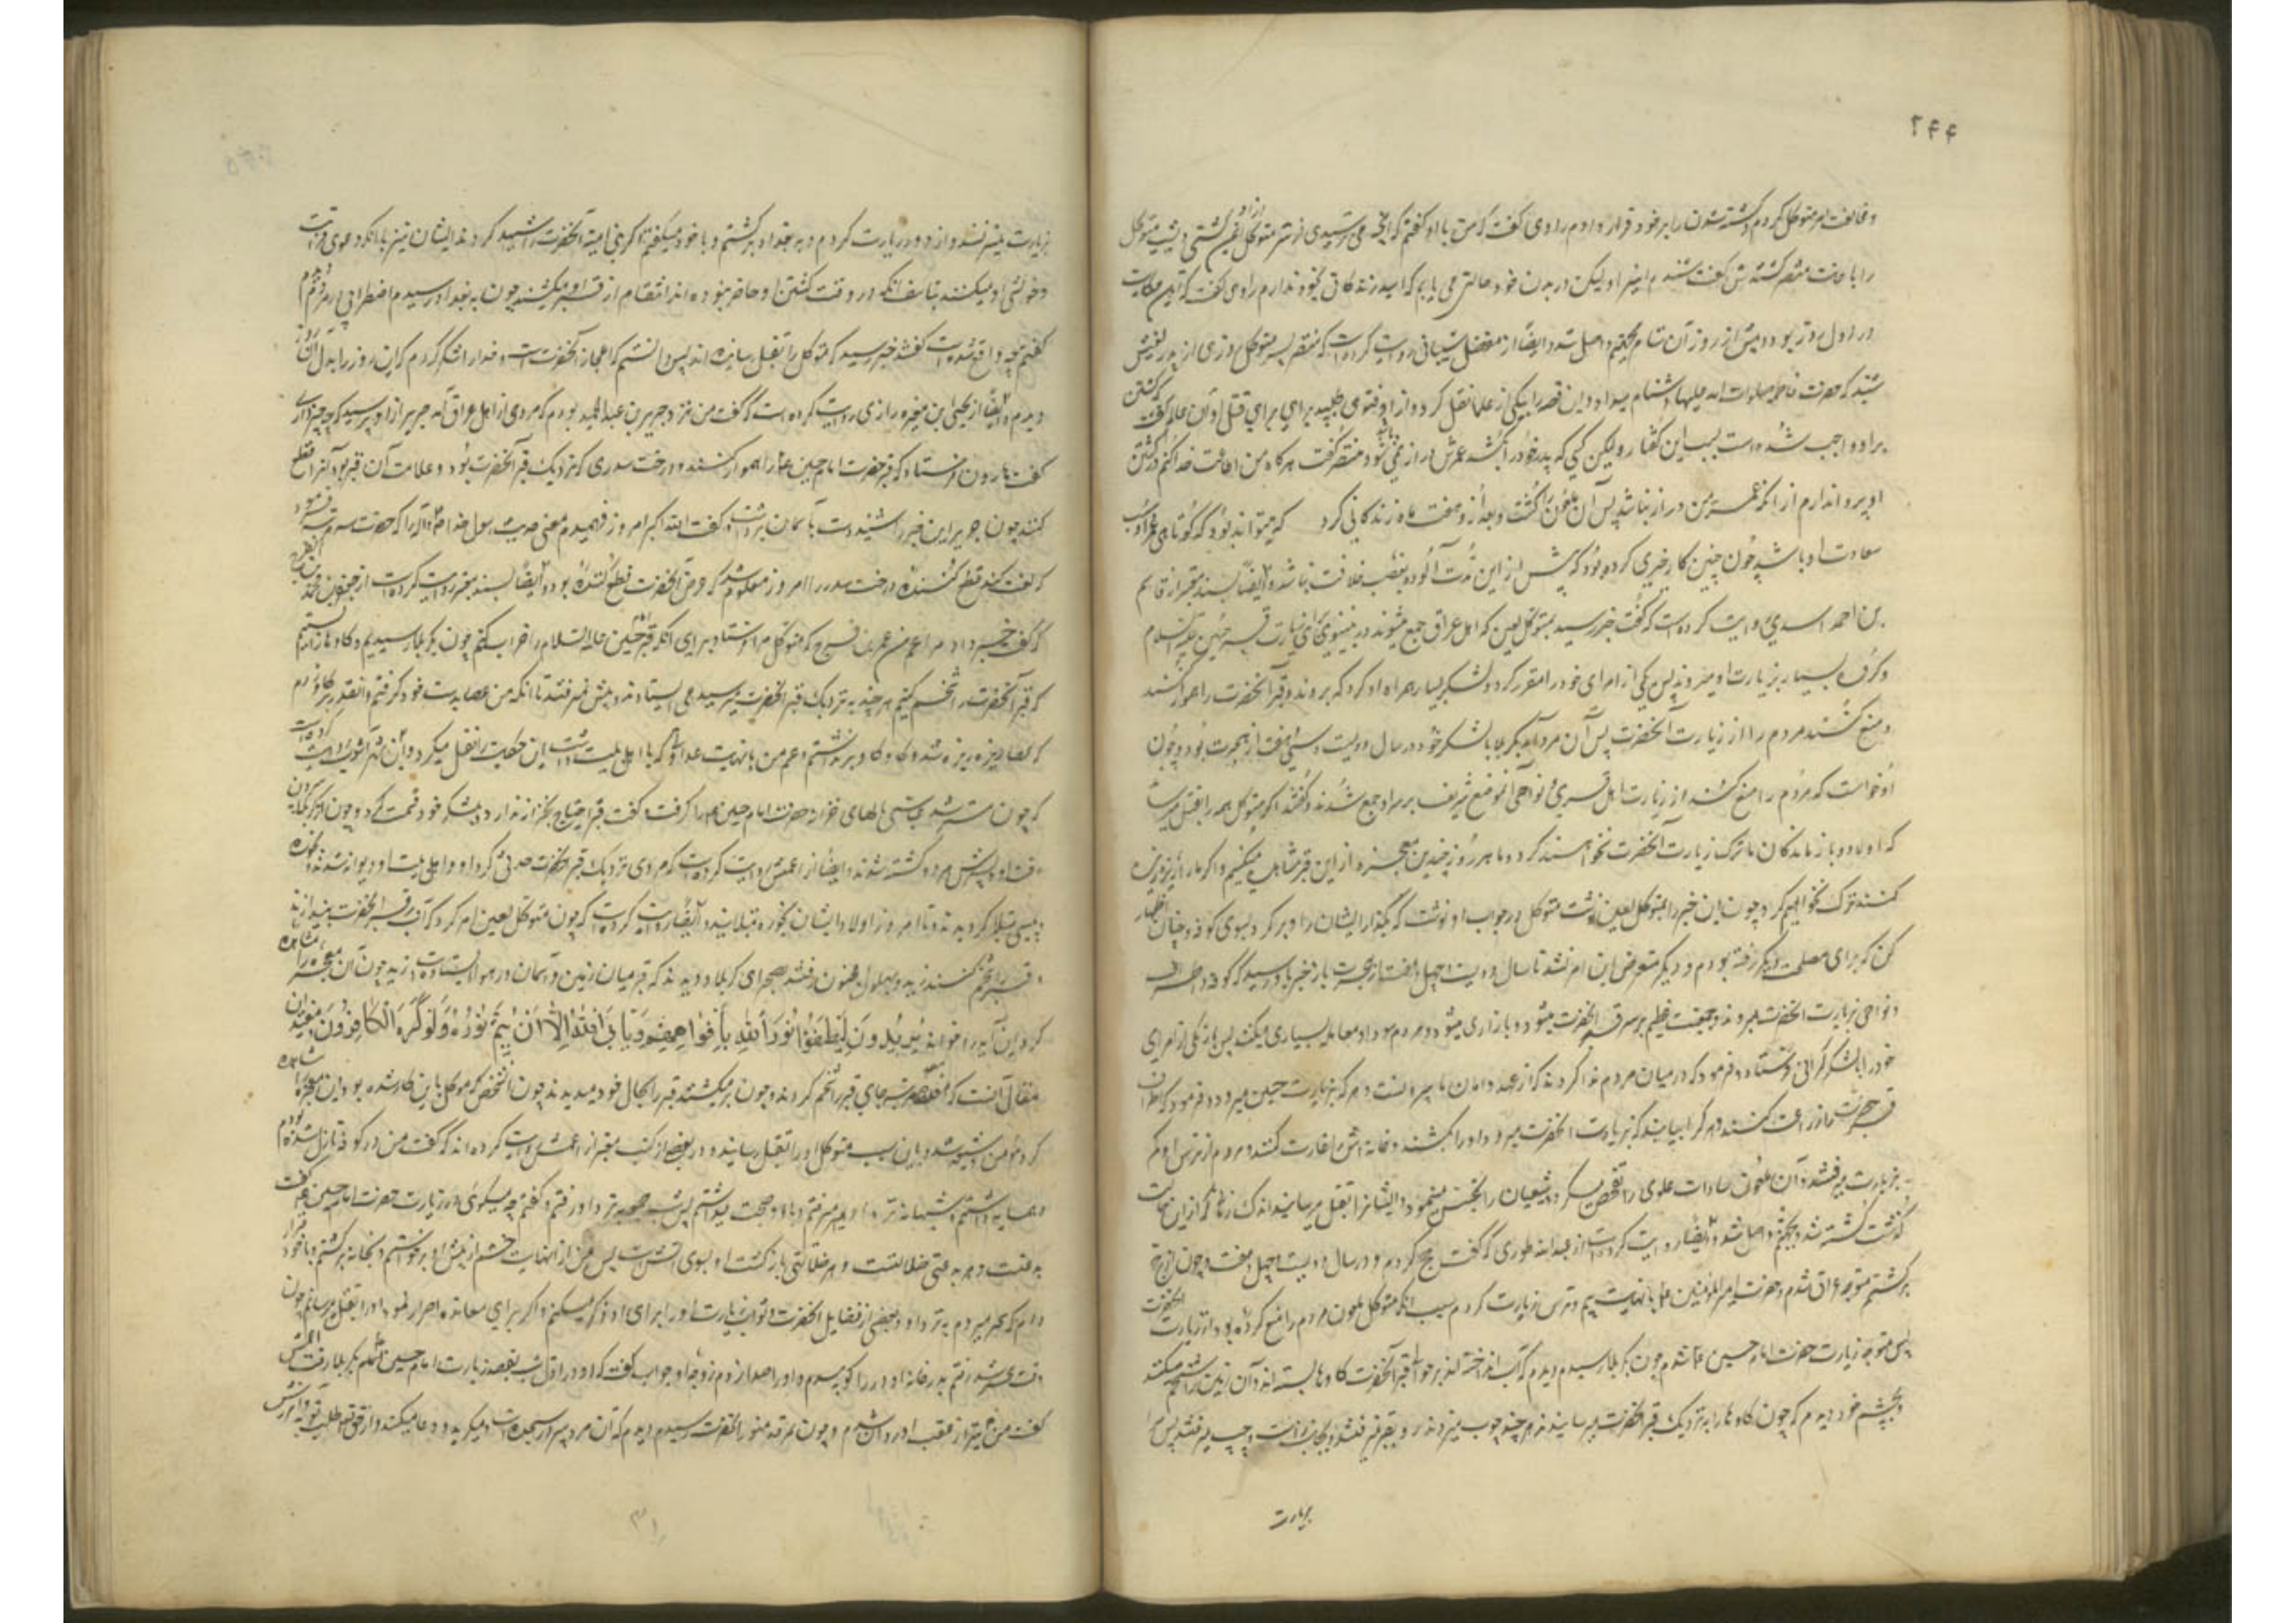 ۲۴۴
و مخالفت امر متوکل کردم و کشته شدن را بر خود قرار دادم راوی گفت که من با او گفتم که آیا نمی ترسیدی از شر متوکل
را باعانت منتصر کشته شد گفت شنیدم اینرا ولیکن در بدن خود حالتی می یابم که امید زندگانی بخود ندارم راوی گفت که این حکایت
در اول روز بود و پیش از روز آن شام بجحیم واصل شد و ایضاً از مفضل شیبانی روایت کرده است که منتصر پسر متوکل روزی از پدر لعینش
شنید که حضرت فاطمه صلوات الله علیها را دشنام میداد و این قصه را بیکی از علما نقل کرد و از او فتوی طلبید برای قتل او آن عالم گفت کشتن
بر او واجب شده است بسبب این گفتار ولیکن کسی که پدر خود را بکشد عمرش دراز نمی شود منتصر گفت هرگاه من اطاعت خدا کنم در کشتن
او پروا ندارم از آنکه عمر من دراز نباشد پس آن ملعون را کشت و بعد از او هفت ماه زندگانی کرد که میتواند بود که کوتاهی عمر او سبب
سعادت او باشد چون چنین کار خیری کرده بود که پیش از این مدت آلوده بغصب خلافت نباشد و ایضاً بسند معتبر از قاسم
بن احمد اسدی روایت کرده است که گفت خبر رسید بمتوکل لعین که اهل عراق جمع میشوند در نینوی برای زیارت قبر حسین علیه السلام
و گروه بسیار بزیارت او میروند پس یکی از امرای خود را مقرر کرد و لشکر بسیار همراه او کرد که بروند و قبر آنحضرت را هموار کنند
و منع کنند مردم را از زیارت آنحضرت پس آن مرد آمد بکربلا با لشکر خود در سال دویست و سی و هفت از هجرت بود و چون
او خواست که مردم را منع کنند از زیارت اهل قری و نواحی آن موضع شریف بر سر او جمع شدند و گفتند اگر متوکل همه را بقتل میرساند
که اولاد و بازماندگان ما ترک زیارت آنحضرت نخواهند کرد و ما هر روز چندین معجزه از این قبر مشاهده میکنیم و اگر ما را ریزه ریزه
کنند ترک نخواهیم کرد چون این خبر را بمتوکل لعین نوشت متوکل در جواب او نوشت که بگذار ایشان را و برگرد بسوی کوفه و چنان اظهار
کن که برای مصلحت دیگر رفته بودم و دیگر متعرض این امر نشد تا سال دویست و چهل و هفت از هجرت باز خبر باو رسید که کوفه و اطراف
و نواحی بزیارت آنحضرت میروند و جمعیت عظیم بر سر قبر آنحضرت میشود و بازاری میشود و مردم سودا و معامله بسیاری میکنند پس باز یکی از امرای
خود را با لشکر گرانی فرستاد و فرمود که در میان مردم ندا کردند که از عهد و امان ما بیرونست هر که بزیارت حسین میرود و فرمود که اطراف
قبر حضرت را زراعت کنند و هر که را بیابند که بزیارت آنحضرت میرود او را بکشند و خانه اش را غارت کنند و مردم از ترس او کم
بزیارت میرفتند و آن ملعون سادات علوی را تفحص میکرد و شیعیان را تجسس مینمود و ایشانرا بقتل میرسانید اندک زمانی از این نگذشت
که کشته شد و بجحیم واصل شد و ایضاً روایت کرده است از عبدالله طوری که گفت حج کردم در سال دویست و چهل و هفت و چون از حج
برگشتم متوجه عراق شدم و حضرت امیرالمؤمنین را با نهایت بیم و ترس زیارت کردم بسبب آنکه متوکل ملعون مردم را منع کرده بود از زیارت آنحضرت
پس متوجه زیارت حضرت امام حسین شدم چون بکربلا رسیدم دیدم که آب انداخته اند بر حوالی قبر آنحضرت و گاوها بسته اند و آن زمین را شخم میکنند
و بچشم خود دیدم که چون گاوها را نزدیک قبر آنحضرت میرسانیدند هر چند چوب میزدند رو بقبر نمیرفتند و بجانب راست و چپ میرفتند پس
بزیارت
بزیارت میسر نشد و از دور زیارت کردم و به بغداد برگشتم و با خود میگفتم اگر بنی امیه آنحضرت را شهید کردند ایشان نیز با آنکه دعوی قرابت
و خویشی او میکنند بتاسف آنکه در وقت کشتن او حاضر نبوده اند انتقام از قبر او میکشند چون به بغداد رسیدم اضطرابی در مردم دیدم
گفتم چه واقع شده است گفتند خبر رسید که متوکل را بقتل رسانیده اند پس دانستم که اعجاز آنحضرت است و خدا را شکر کردم که این روز را بدل آن روز
دیدم و ایضاً از یحیی ابن مغیره رازی روایت کرده است که گفت من نزد جریر بن عبدالحمید بودم که مردی از اهل عراق آمد جریر از او پرسید که چه خبر داری
گفت هارون فرستاد که قبر حضرت امام حسین را هموار کنند و درخت سدری که نزدیک قبر آنحضرت بود و علامت آن قبر بود آنرا قطع
کنند چون جریر این خبر را شنید دست بآسمان برداشت و گفت الله اکبر امروز فهمیدم معنی حدیث رسول خدا را که حضرت سه مرتبه فرمود
که لعنت کند قطع کننده درخت سدر را امروز معلوم شد که غرض آنحضرت قطع کننده بود و ایضاً بسند معتبر روایت کرده است از جعفر بن محمد
که گفت خبر داد مرا عم من عمر بن فرج که متوکل مرا فرستاد برای آنکه قبر حسین علیه السلام را خراب کنم چون بکربلا رسیدیم و گاوها را بستیم
که قبر آنحضرت را شخم کنیم هر چند به نزدیک قبر آنحضرت میرسید می ایستادند و پیش نمیرفتند تا آنکه من عصا بدست خود گرفتم و آنقدر بر گاو زدم
که عصا ریزه ریزه شد و گاو گام بر نداشتم و عم من با نهایت عداوتی که با اهل بیت داشت این حکایت را نقل میکرد و ابن شهرآشوب روایت کرده است
که چون مسترشد عباسی مالهای خزانه حضرت امام حسین را گرفت و گفت قبر احتیاج بخزانه ندارد و بلشکر خود قسمت کرد و چون از کربلا بیرون
رفت او و پسرش هر دو کشته شدند و ایضاً از اعمش روایت کرده است که مردی نزدیک قبر آنحضرت حدثی کرد او و اهل بیت او دیوانه شدند و بخوره
و پیسی مبتلا گردیدند و تا امروز اولاد ایشان بخوره مبتلایند و ایضاً روایت کرده است که چون متوکل لعین امر کرد که آب بر قبر آنحضرت بیندازند
و قبر را شخم کنند زید و بهلول مجنون رفتند بصحرای کربلا و دیدند که قبر میان زمین و آسمان در هوا ایستاده است زید چون آن معجزه را مشاهده
کرد این آیه را خواند یُرِیدُونَ لِیُطْفِؤُا نُورَ اللهِ بِأَفْوَاهِهِمْ وَیَأْبَى اللهُ إِلَّا أَنْ یُتِمَّ نُورَهُ وَلَوْ کَرِهَ الْکَافِرُونَ
مقال آنست که هفده مرتبه جای قبر را شخم کردند و چون برمیگشتند قبر را بحال خود میدیدند چون آن شخص که موکل باین کار شده بود این معجزه را مشاهده
کرد مؤمن و شیعه شد و باین سبب متوکل او را بقتل رسانید و در بعضی از کتب معتبر از اعمش روایت کرده اند که گفت من در کوفه نازل شده بودم
همسایه داشتم و شبها نزد او میرفتم و با او صحبت میداشتم پس شب جمعه نزد او رفتم و گفتم چه میگوئی در زیارت حضرت امام حسین گفت
بدعتست و هر بدعتی ضلالتست و هر ضلالتی بازگشت او بسوی آتش است پس من از نهایت خشم از پیش او برخواستم و بخانه برگشتم و با خود قرار
دادم که سحر میروم به نزد او و بعضی از فضایل آنحضرت و ثواب زیارت او را برای او ذکر میکنم و اگر برای معانده اصرار نمود او را بقتل میرسانم چون
وقت سحر شد رفتم بدر خانه او و در را کوبیدم و او را صدا زدم زوجه او جواب گفت که او در اول شب بقصد زیارت امام حسین علیه السلام بکربلا رفت اعمش
گفت من نیز از عقب او روان شدم و چون بمرقد منور آنحضرت رسیدم دیدم که آن مرد پیر در سجده است و میگرید و دعا میکند و از حق تعالی طلب توبه و آمرزش